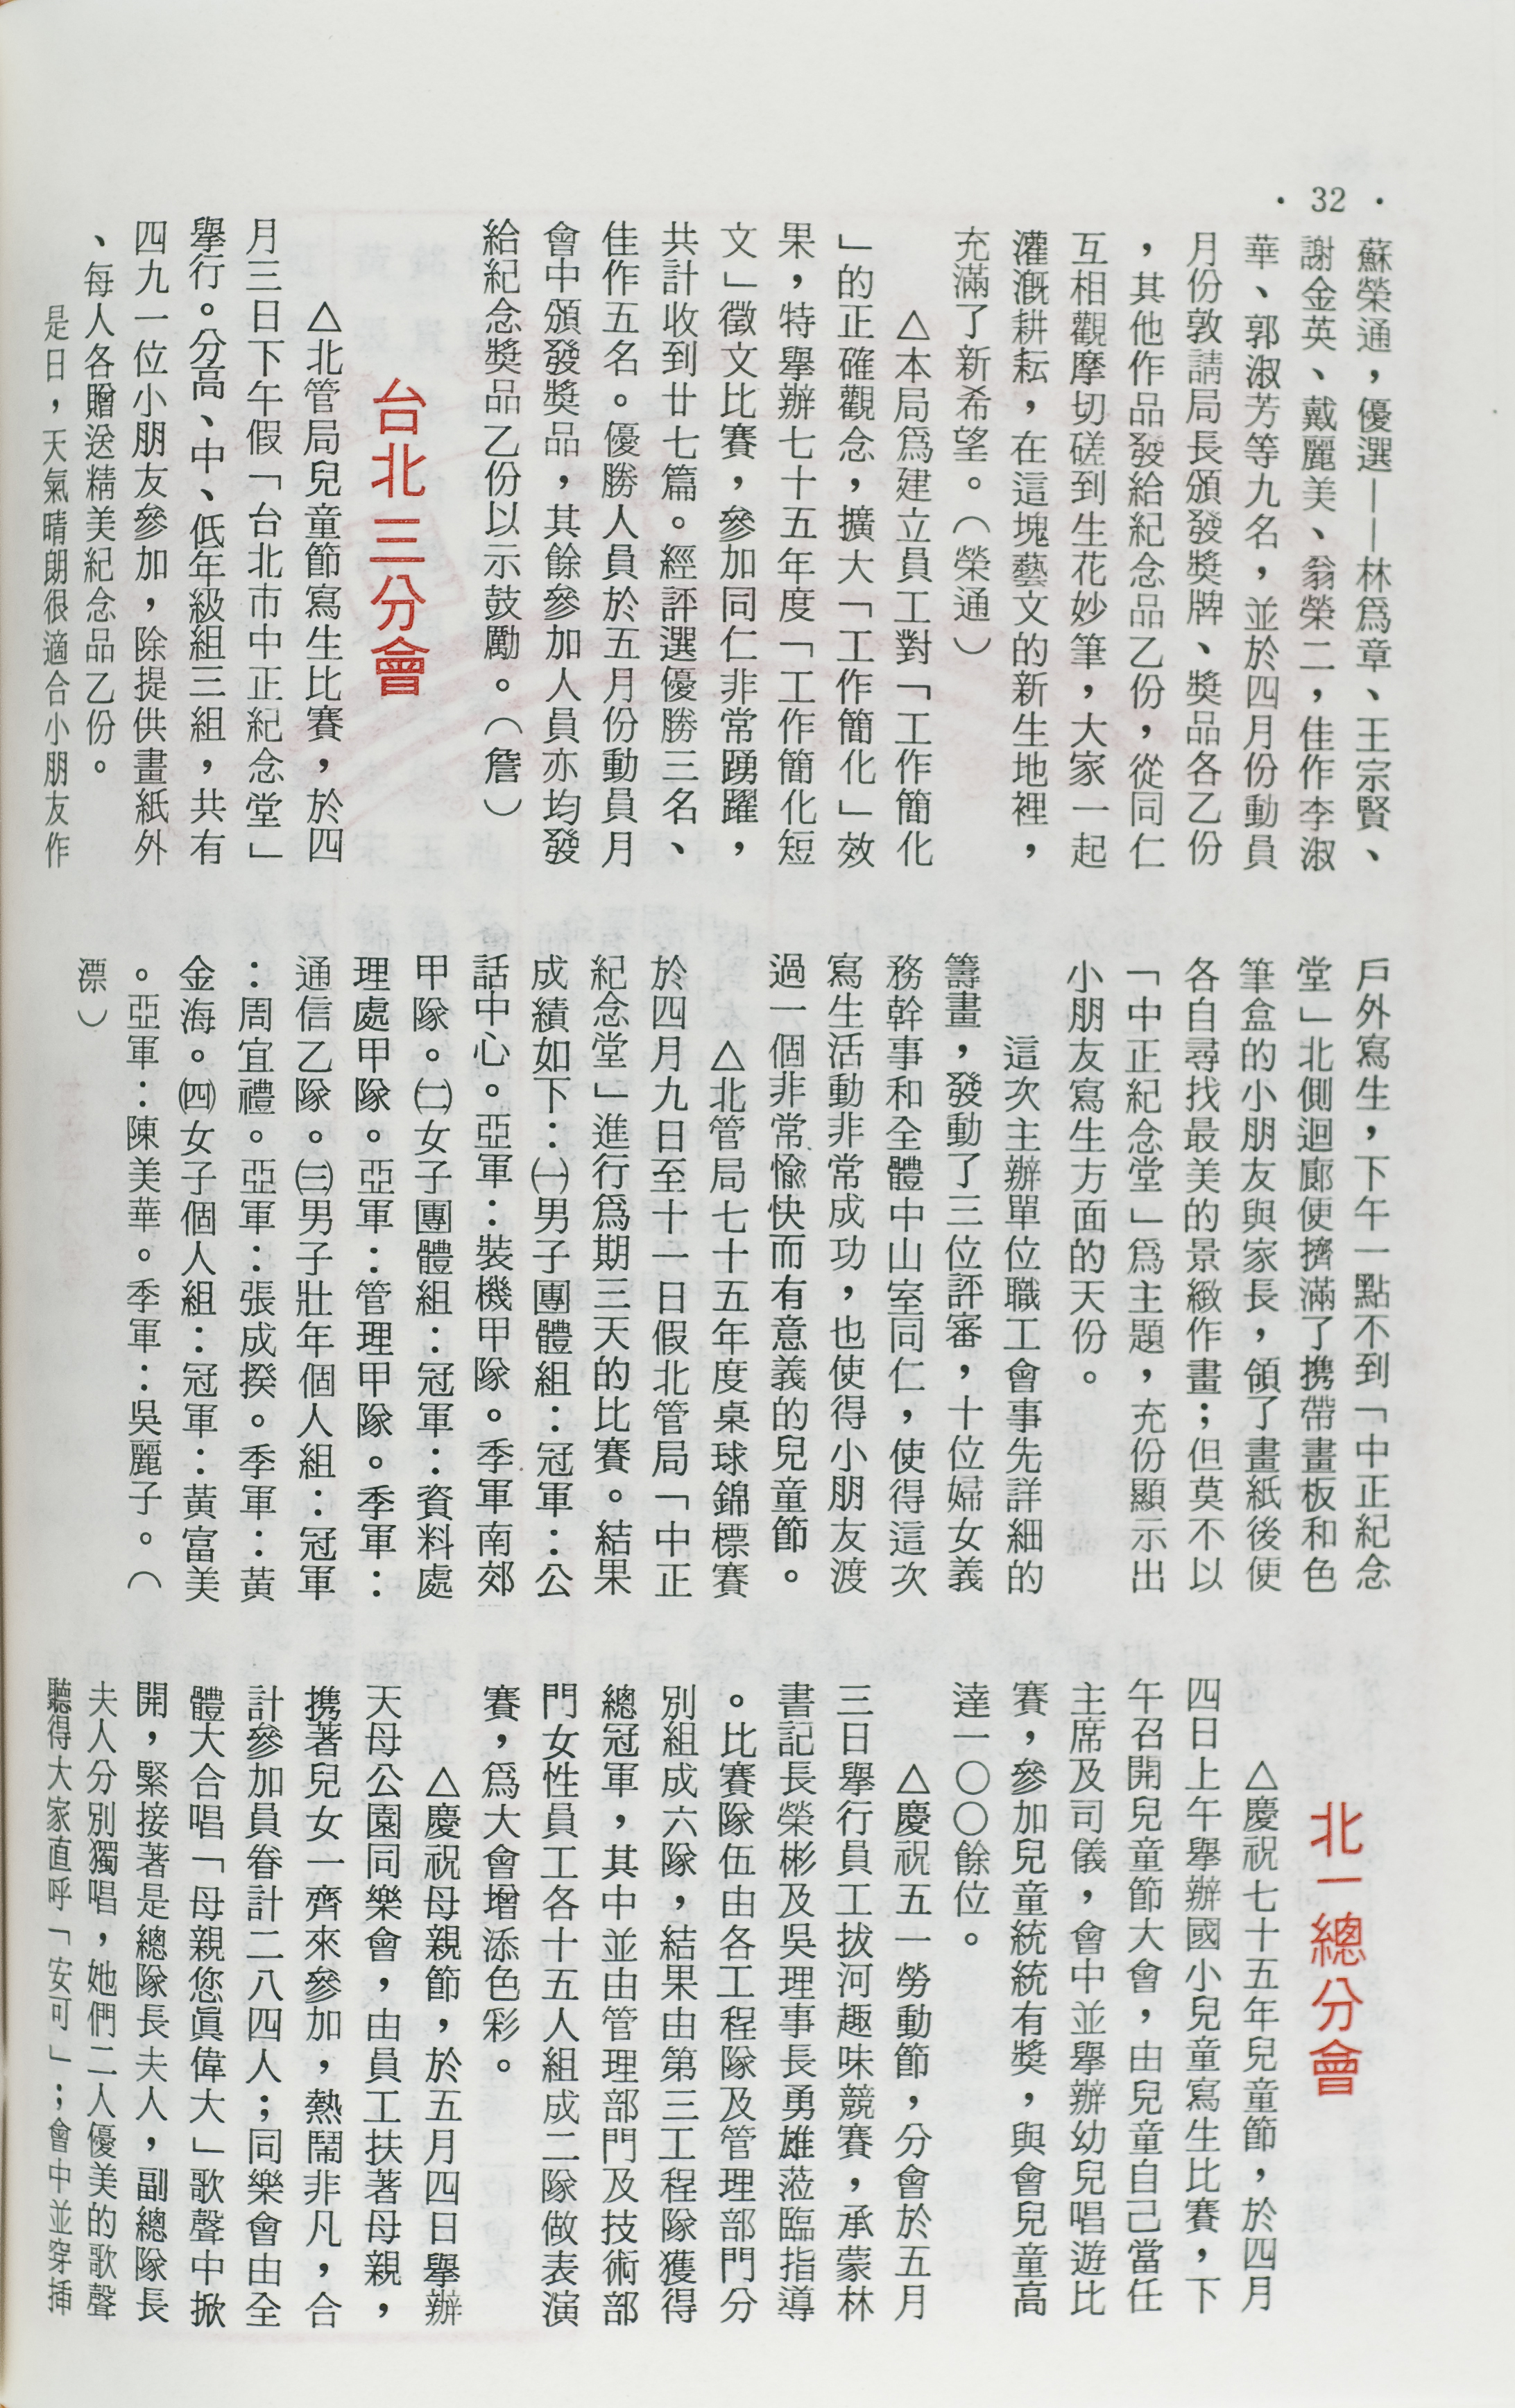 • 32 •
蘇榮通，優選——林爲章、王宗賢、
謝金英、戴麗美、翁榮二，佳作李淑
華、郭淑芳等九名，並於四月份動員
月份敦請局長頒發獎牌、獎品各乙份
，其他作品發給紀念品乙份，從同仁
互相觀摩切磋到生花妙筆，大家一起
灌漑耕耘，在這塊藝文的新生地裡，
充滿了新希望。（榮通）
△本局爲建立員工對「工作簡化
」的正確觀念，擴大「工作簡化」效
果，特舉辦七十五年度「工作簡化短
文」徵文比賽，參加同仁非常踴躍，
共計收到廿七篇。經評選優勝三名、
佳作五名。優勝人員於五月份動員月
會中頒發獎品，其餘參加人員亦均發
給紀念獎品乙份以示鼓勵。（詹）
台北三分會
△北管局兒童節寫生比賽，於四
月三日下午假「台北市中正紀念堂」
舉行。分高、中、低年級組三組，共有
四九一位小朋友參加，除提供畫紙外
、每人各贈送精美紀念品乙份。
是日，天氣晴朗很適合小朋友作
戶外寫生，下午一點不到「中正紀念
堂」北側迴廊便擠滿了携帶畫板和色
筆盒的小朋友與家長，領了畫紙後便
各自尋找最美的景緻作畫；但莫不以
「中正紀念堂」爲主題，充份顯示出
小朋友寫生方面的天份。
這次主辦單位職工會事先詳細的
籌畫，發動了三位評審，十位婦女義
務幹事和全體中山室同仁，使得這次
寫生活動非常成功，也使得小朋友渡
過一個非常愉快而有意義的兒童節。
△北管局七十五年度桌球錦標賽
於四月九日至十一日假北管局「中正
紀念堂」進行爲期三天的比賽。結果
成績如下：㈠男子團體組：冠軍：公
話中心。亞軍：裝機甲隊。季軍南郊
甲隊。㈡女子團體組：冠軍：資料處
理處甲隊。亞軍：管理甲隊。季軍：
通信乙隊。㈢男子壯年個人組：冠軍
：周宜禮。亞軍：張成揆。季軍：黃
金海。㈣女子個人組：冠軍：黃富美
。亞軍：陳美華。季軍：吳麗子。（
漂）
北一總分會
△慶祝七十五年兒童節，於四月
四日上午舉辦國小兒童寫生比賽，下
午召開兒童節大會，由兒童自己當任
主席及司儀，會中並舉辦幼兒唱遊比
賽，參加兒童統統有獎，與會兒童高
達一〇〇餘位。
△慶祝五一勞動節，分會於五月
三日舉行員工拔河趣味競賽，承蒙林
書記長榮彬及吳理事長勇雄蒞臨指導
。比賽隊伍由各工程隊及管理部門分
別組成六隊，結果由第三工程隊獲得
總冠軍，其中並由管理部門及技術部
門女性員工各十五人組成二隊做表演
賽，爲大會增添色彩。
△慶祝母親節，於五月四日舉辦
天母公園同樂會，由員工扶著母親，
携著兒女一齊來參加，熱鬧非凡，合
計參加員眷計二八四人；同樂會由全
體大合唱「母親您眞偉大」歌聲中掀
開，緊接著是總隊長夫人，副總隊長
夫人分別獨唱，她們二人優美的歌聲
聽得大家直呼「安可」；會中並穿揷